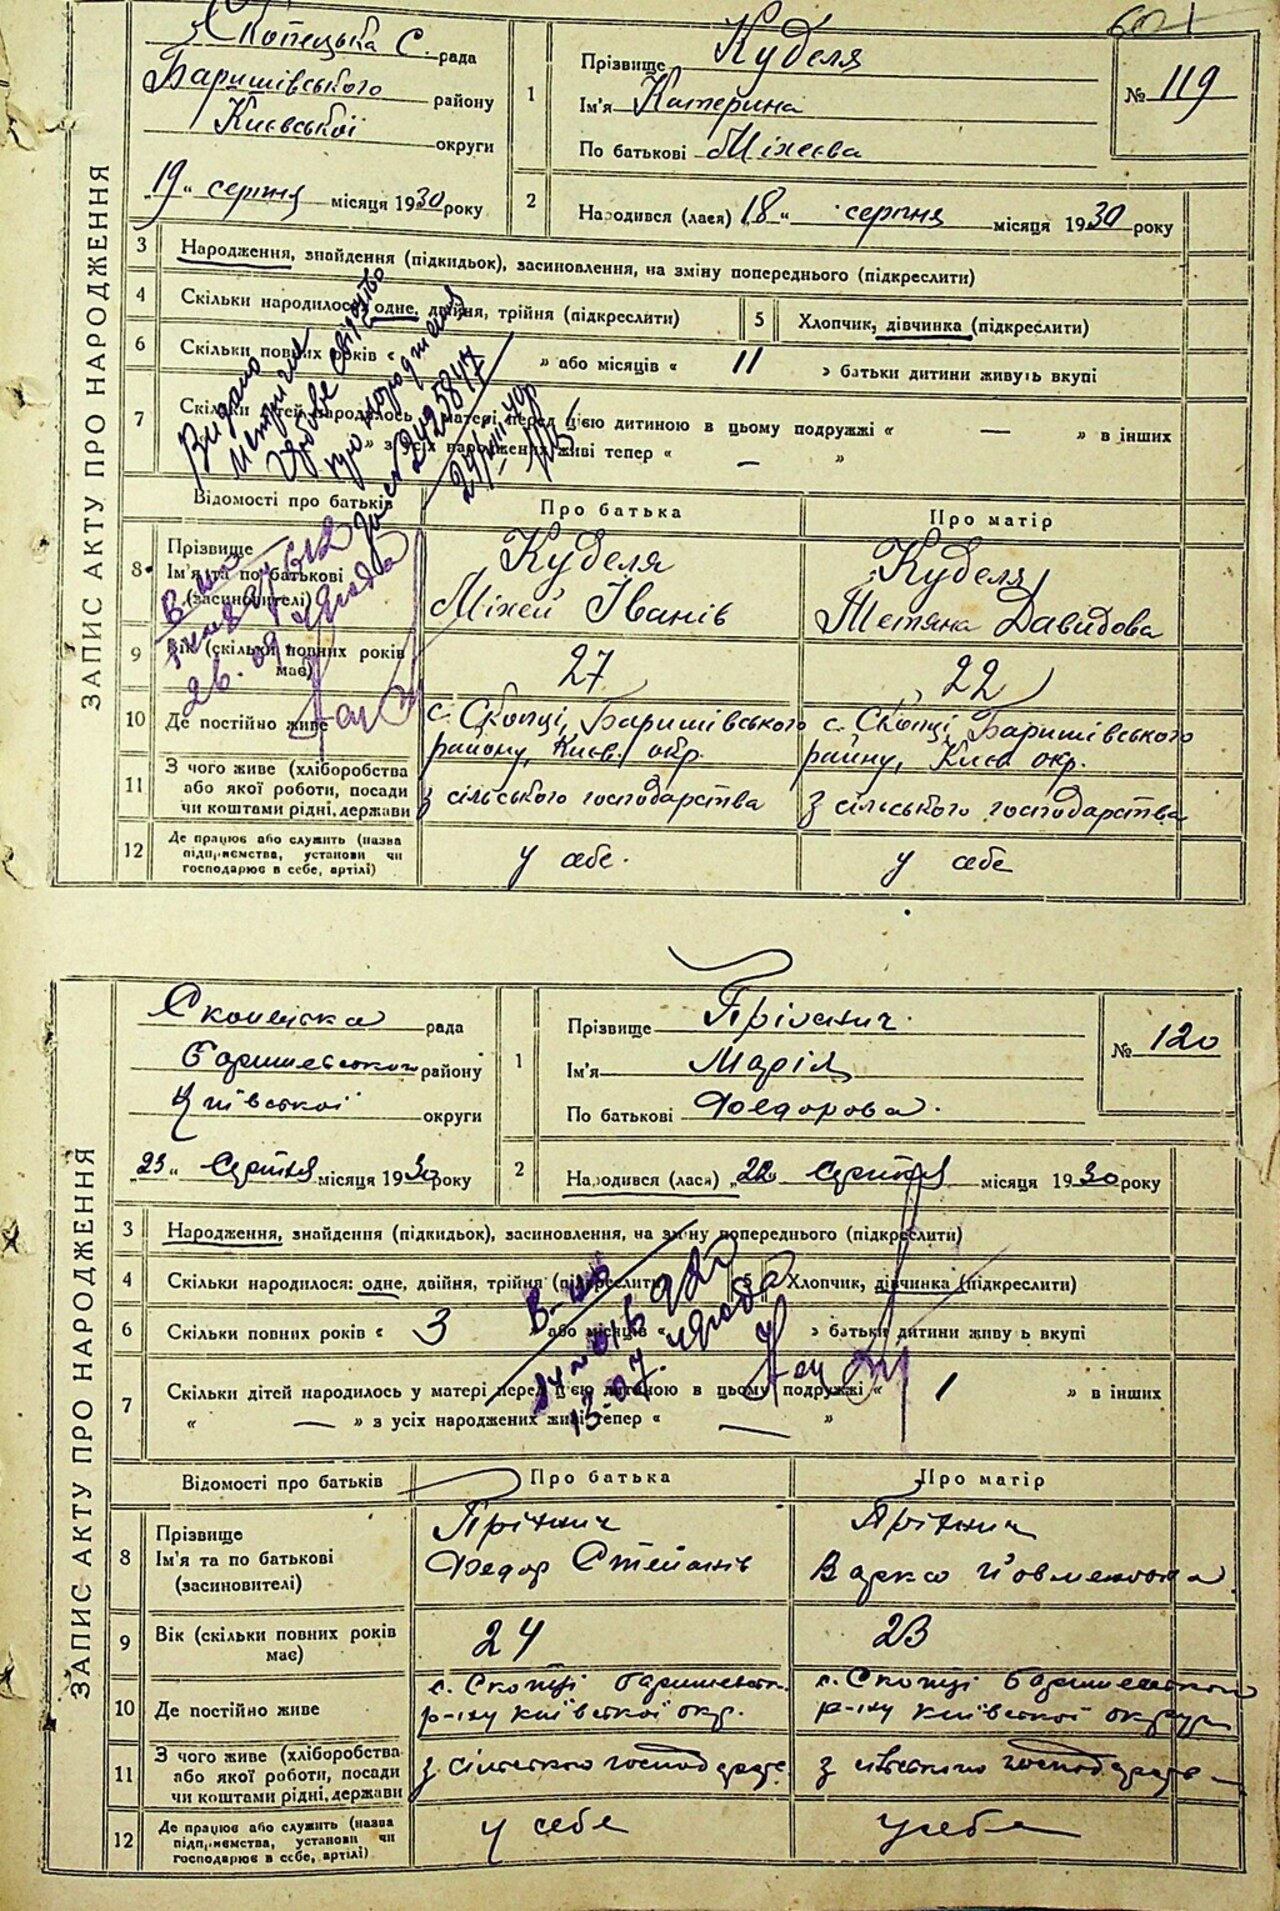 ЗАПИС АКТУ ПРО НАРОДЖЕННЯ
Скопецька С. рада
Баришівського району
Київської округи
"19" серпня місяця 1930 року
1 Прізвище Куделя
Ім'я Катерина
По батькові Міхеєва
№ 119
2 Народився (лася) "18" серпня місяця 1930 року
3 Народження, знайдення (підкидьок), засиновлення, на зміну попереднього (підкреслити)
4 Скільки народилося: одне, двійня, трійня (підкреслити)
5 Хлопчик, дівчинка (підкреслити)
6 Скільки повних років « » або місяців « 11 » батьки дитини живуть вкупі
7 Скільки дітей народилось у матері перед цією дитиною в цьому подружжі « — » в інших
« » з усіх народжених живі тепер « — »
Видано
про народження
Відомості про батьків Про батька Про матір
8 Прізвище
Ім'я та по батькові
(засиновителі)
Куделя
Міхей Іванів
Куделя
Тетяна Давидова
9 Вік (скільки повних років має) 27 22
10 Де постійно живе
с. Скопці, Баришівського
району, Києв. окр.
с. Скопці, Баришівського
району, Києв. окр.
11 З чого живе (хліборобства
або якої роботи, посади
чи коштами рідні, держави
з сільського господарства
з сільського господарства
12 Де працює або служить (назва
підприємства, установи чи
господарює в себе, артілі)
у себе.
у себе
ЗАПИС АКТУ ПРО НАРОДЖЕННЯ
Скопецька рада
Баришевського району
Київської округи
"23" серпня місяця 1930 року
1 Прізвище
Ім'я Марія
По батькові Федорова.
№ 120
2 Народився (лася) "22" серпня місяця 1930 року
3 Народження, знайдення (підкидьок), засиновлення, на зміну попереднього (підкреслити)
4 Скільки народилося: одне, двійня, трійня (підкреслити)
5 Хлопчик, дівчинка (підкреслити)
6 Скільки повних років « 3 » або місяців « » батьки дитини живуть вкупі
7 Скільки дітей народилось у матері перед цією дитиною в цьому подружжі « 1 » в інших
« — » з усіх народжених живі тепер « — »
Відомості про батьків Про батька Про матір
8 Прізвище
Ім'я та по батькові
(засиновителі)
Федор Степанів
Варка
9 Вік (скільки повних років має) 24 23
10 Де постійно живе
с. Скопці Баришевськ.
р-ну Київської окр.
с. Скопці Баришевського
р-ну Київської округи
11 З чого живе (хліборобства
або якої роботи, посади
чи коштами рідні, держави
з сільського господарс.
з сільського господарств
12 Де працює або служить (назва
підприємства, установи чи
господарює в себе, артілі)
у себе
у себе